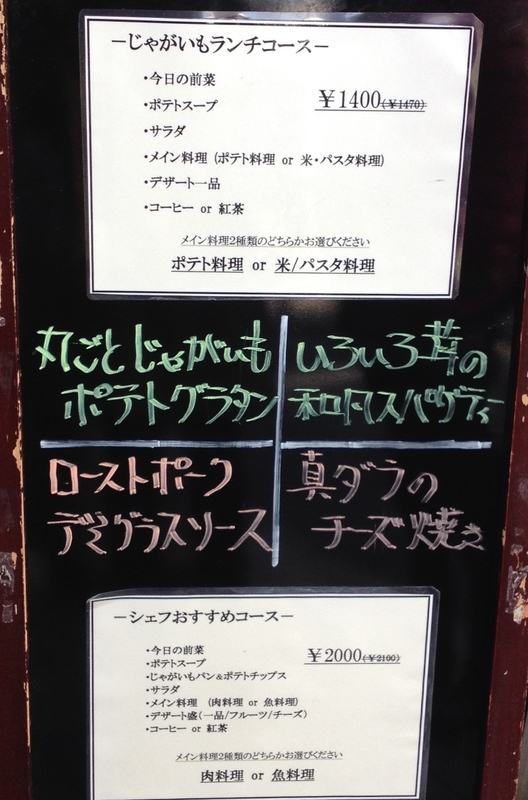 －じゃがいもランチコース－
・今日の前菜
・ポテトスープ
￥1400(￥1470)
・サラダ
・メイン料理 (ポテト料理 or 米・パスタ料理)
・デザート一品
・コーヒー or 紅茶
メイン料理2種類のどちらかお選びください
ポテト料理 or 米/パスタ料理
丸ごとじゃがいも
ポテトグラタン
いろいろ茸の
和風スパゲティ
ローストポーク
デミグラスソース
真ダラの
チーズ焼き
－シェフおすすめコース－
・今日の前菜
・ポテトスープ
￥2000(￥2100)
・じゃがいもパン＆ポテトチップス
・サラダ
・メイン料理 (肉料理 or 魚料理)
・デザート盛(一品/フルーツ/チーズ)
・コーヒー or 紅茶
メイン料理2種類のどちらかお選びください
肉料理 or 魚料理